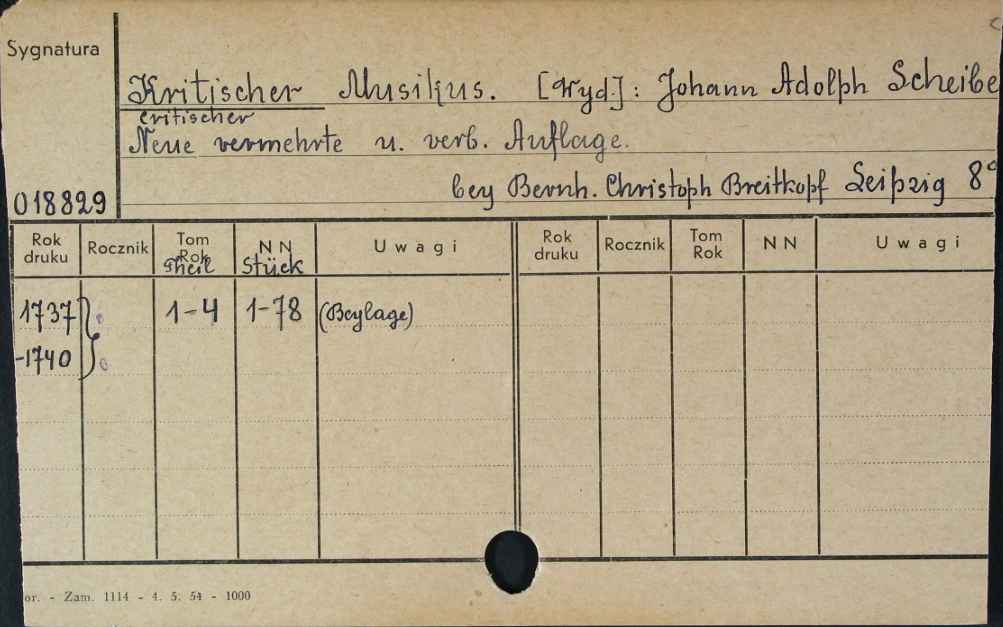 Sygnatura
Kritischer Musikus. [Wyd.]: Johann Adolph Scheibe
critischer
Neue vermehrte u. verb. Auflage.
bey Bernh. Christoph Breitkopf Leipzig 8°
018829
Rok druku Rocznik Tom Rok Theil N N Stück U w a g i Rok druku Rocznik Tom Rok N N U w a g i
1737 1-4 1-78 (Beylage)
-1740
or. - Zam. 1114 - 4. 5. 54 - 1000